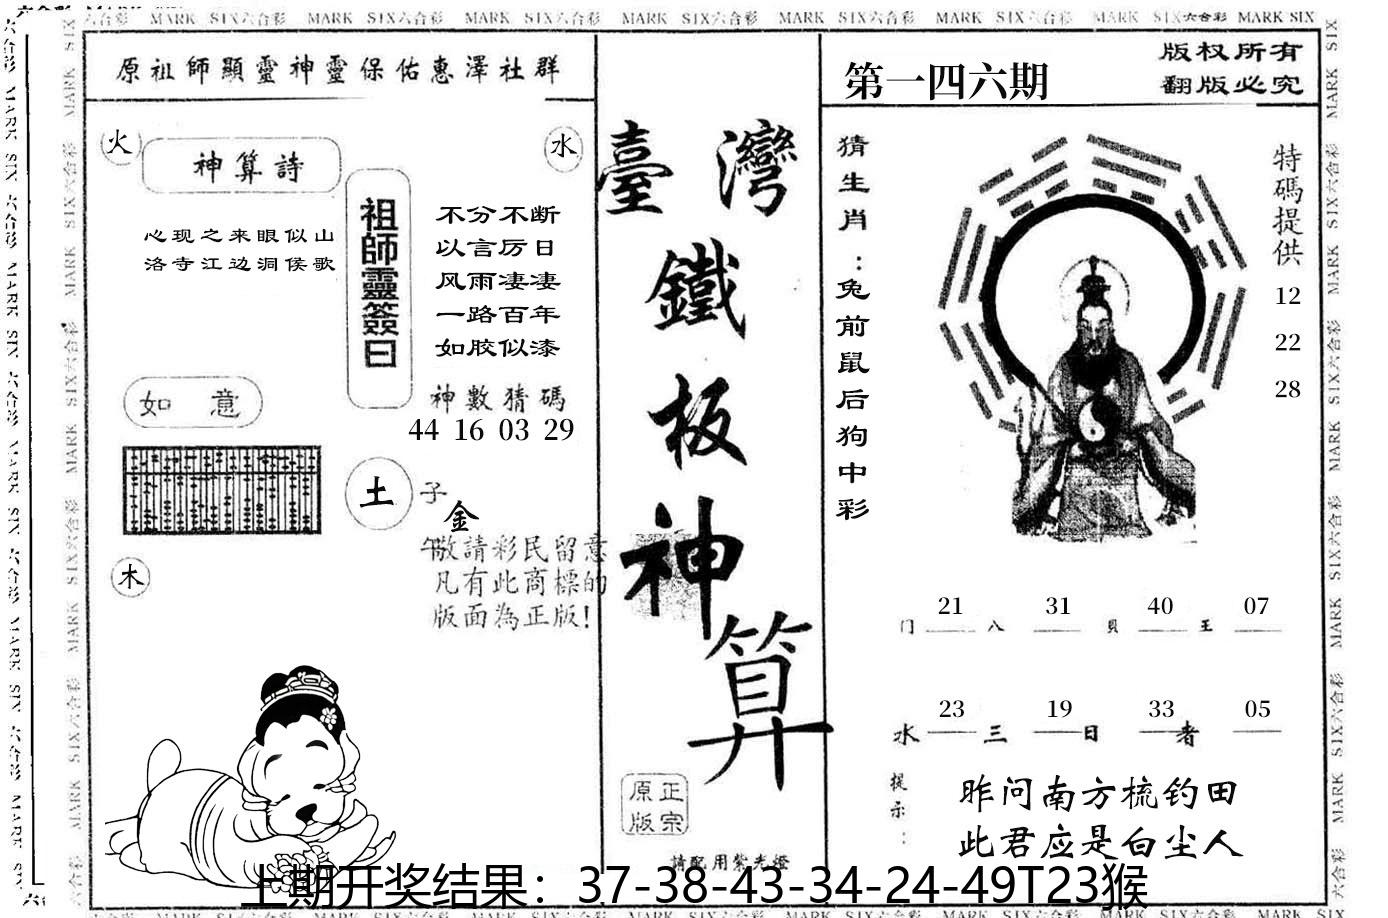 MARK SIX六合彩 MARK SIX六合彩 MARK SIX六合彩 MARK SIX六合彩 MARK SIX六合彩 MARK SIX六合彩 MARK SIX六合彩 MARK SIX
原祖師顯靈神靈保佑惠澤社群
火
水
神算詩
心现之来眼似山
洛寺江边洞侯歌
祖師靈簽曰
不分不断
以言厉日
风雨凄凄
一路百年
如胶似漆
神數猜碼
44 16 03 29
如意
土
子
金
午
木
敬請彩民留意
凡有此商標的
版面為正版!
臺灣
鐵
板
神
算
正宗
原版
請配用紫光燈
第一四六期
版权所有
翻版必究
猜生肖:兔前鼠后狗中彩
特碼提供
12
22
28
门 21 八 31 貝 40 王 07
水 23 三 19 日 33 者 05
提示:
昨问南方梳钓田
此君应是白尘人
上期开奖结果：37-38-43-34-24-49T23猴